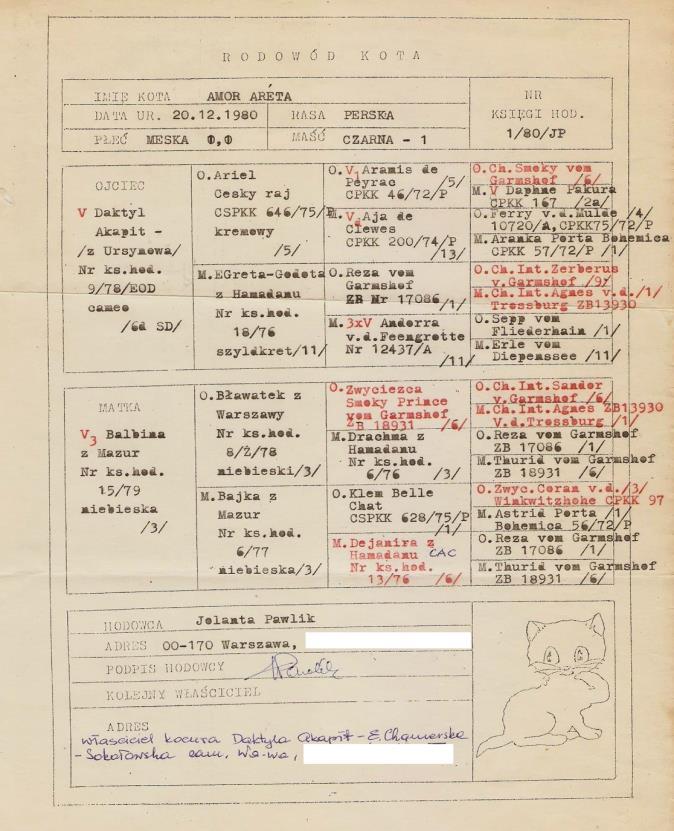 RODOWÓD KOTA
IMIĘ KOTA AMOR ARÉTA
DATA UR. 20.12.1980 RASA PERSKA
PŁEĆ MESKA 0,0 MAŚĆ CZARNA - 1
NR
KSIĘGI HOD.
1/80/JP
OJCIEC
V Daktyl
Akapit -
/z Ursynowa/
Nr ks.hod.
9/78/EOD
cameo
/6d SD/
O.Ariel
Cesky raj
CSPKK 646/75/P
kremowy
/5/
M.EGreta-Godota
z Hamadanu
Nr ks.hod.
18/76
szyldkret/11/
O.V1Aramis de
Peyrac /5/
CPKK 46/72/P
M.V Aja de
Clewes
CPKK 200/74/P
/13/
O.Reza vom
Garmshof
ZB Nr 17086/1/
M.3xV Andorra
v.d.Feengrotte
Nr 12437/A
/11/
O.Ch.Smoky vom
Garmshof /6/
M.V Daphne Pakura
CPKK 167 /2a/
O.Ferry v.d.Mulde /4/
10720/A,CPKK75/72/P
M.Aranka Porta Bohemica
CPKK 57/72/P /1/
O.Ch.Int.Zerberus
v.Garmshof /9/
M.Ch.Int.Agnes v.d./1/
Trossburg ZB13930
O.Sepp vom
Fliederhain /1/
M.Erle vom
Diepenssee /11/
MATKA
V3 Balbina
z Mazur
Nr ks.hod.
15/79
niebieska
/3/
O.Bławatek z
Warszawy
Nr ks.hod.
8/Ż/78
niebieski/3/
M.Bajka z
Mazur
Nr ks.hod.
6/77
niebieska/3/
O.Zwyciezca
Smoky Prince
vom Garmshof
ZB 18931 /6/
M.Drachma z
Hamadanu
Nr ks.hod.
6/76 /3/
O.Klem Belle
Chat
CSPKK 628/75/P
/1/
M.Dejanira z
Hamadanu CAC
Nr ks.hod.
13/76 /6/
O.Ch.Int.Sandor
v.Garmshof /6/
M.Ch.Int.Agnes ZB13930
V.d.Trossburg /1/
O.Reza vom Garmshof
ZB 17086 /1/
M.Thurid vom Garmshof
ZB 18931 /6/
O.Zwyc.Coran v.d./3/
Winkwitzhohe CPKK 97
M.Astrid Porta /1/
Bohemica 56/72/P
O.Reza vom Garmshof
ZB 17086 /1/
M.Thurid vom Garmshof
ZB 18931 /6/
HODOWCA Jolanta Pawlik
ADRES 00-170 Warszawa,
PODPIS HODOWCY
KOLEJNY WŁAŚCICIEL
ADRES
właściciel kocura Daktyla Akapit - E.
-Sokołowska zam. Wa-wa,